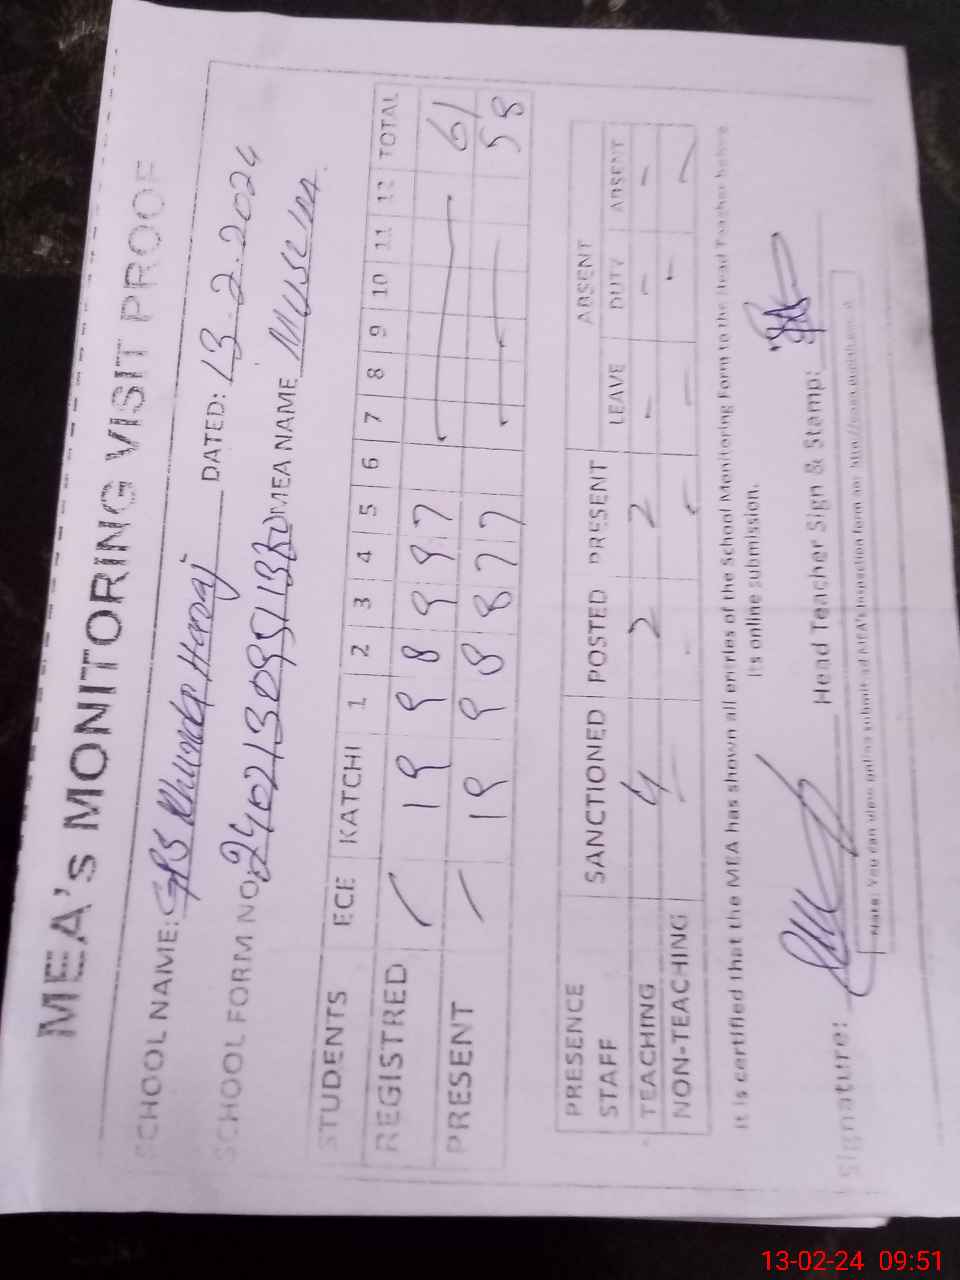 MEA's MONITORING VISIT PROOF
SCHOOL NAME: GPS Khunder Haraj DATED: 13.2.2024
SCHOOL FORM NO. MEA NAME MUSLIM
STUDENTS ECE KATCHI 1 2 3 4 5 6 7 8 9 10 11 12 TOTAL
REGISTRED / 19 9 8 9 9 7 61
PRESENT / 19 9 8 8 7 7 58
PRESENCE SANCTIONED POSTED PRESENT ABSENT
STAFF LEAVE DUTY ABSENT
TEACHING 4 2 2 - - -
NON-TEACHING - - - - - -
It is certified that the MEA has shown all entries of the School Monitoring Form to the Head Teacher before
its online submission.
Signature: Head Teacher Sign & Stamp:
Note: You can view online submitted MEA's Inspection form on: http://
13-02-24 09:51